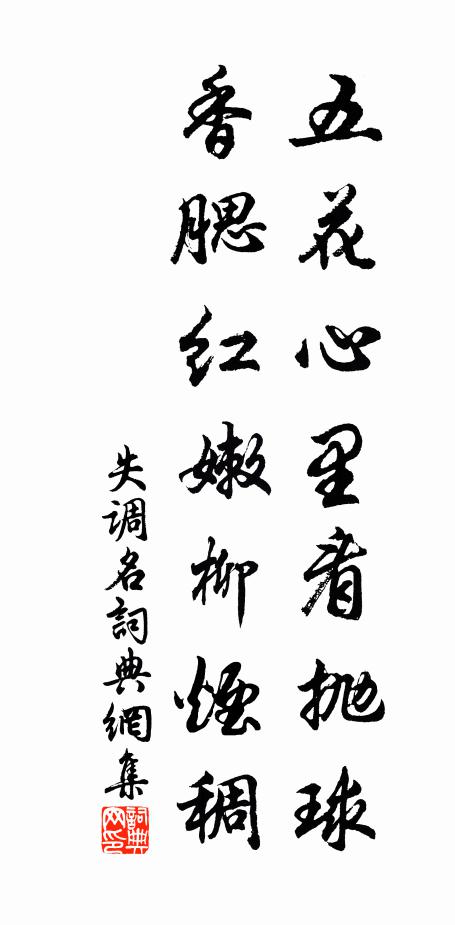 五花心里看抛球
香腮红嫩柳烟稠
失調名詞典網集
詞典网印